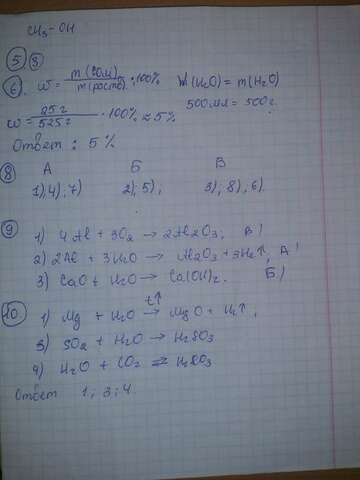 CH₃-OH
5) 3
6. w = m(сом)/m(раствор) · 100% M(H₂O) = m(H₂O)
500мл = 500г.
w = 25г/525г · 100% ≈ 5%
Ответ: 5%
8) А Б В
1), 4), 7) 2), 5), 3), 8), 6).
9) 1) 4Al + 3O₂ → 2Al₂O₃, В)
2) 2Al + 3H₂O → Al₂O₃ + 3H₂↑, А)
3) CaO + H₂O → Ca(OH)₂. Б)
10. 1) Mg + H₂O t↑→ MgO + H₂↑,
3) SO₂ + H₂O → H₂SO₃
4) H₂O + CO₂ ⇄ H₂CO₃
Ответ 1; 3; 4